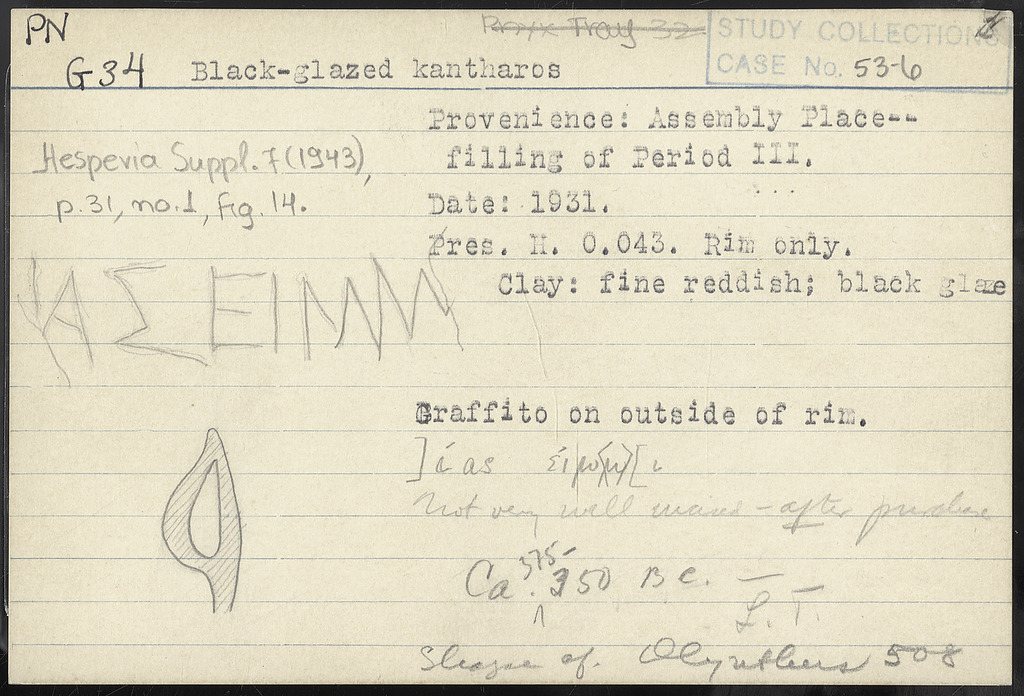 PN
Tray 32
STUDY COLLECTIONS
CASE No. 53-6
G34 Black-glazed kantharos
Provenience: Assembly Place--
filling of Period III.
Hesperia Suppl. 7 (1943),
p. 31, no. 1, fig. 14.
Date: 1931.
Pres. H. 0.043. Rim only.
Clay: fine reddish; black glaze
ΑΣΕΙΜ
Graffito on outside of rim.
Not very well - after
Ca. 375-350 B.C. —
L.T.
of. Olynthus 508